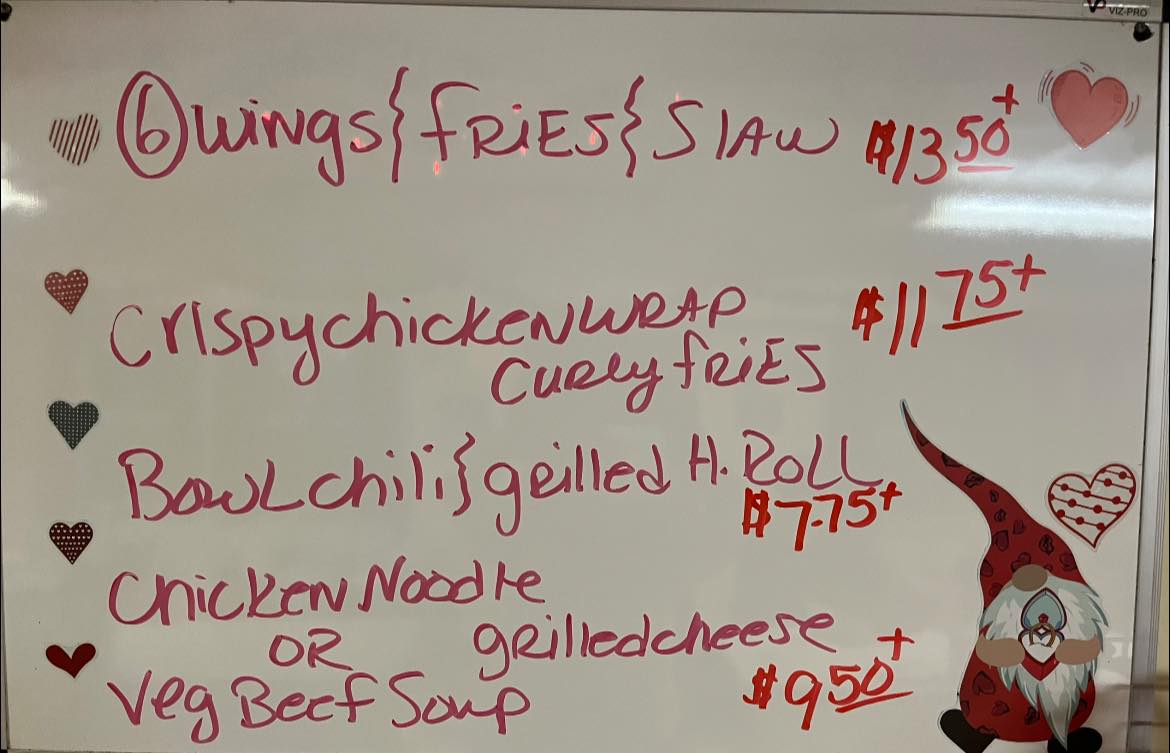 VIZ-PRO
6 wings { FRIES { SLAW $13 50+
CrispychickenWRAP $11 75+
Curly fRiES
Bowl chili } grilled H. Roll
$7.75+
Chicken Noodle
OR grilledcheese
Veg Beef Soup $9 50+